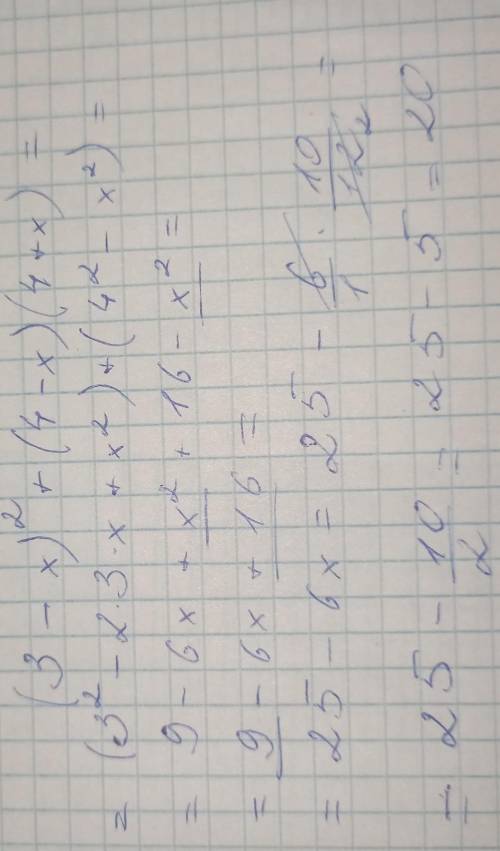 (3 - x)² + (4 - x)(4 + x) =
= (3² - 2·3·x + x²) + (4² - x²) =
= 9 - 6x + x² + 16 - x² =
= 9 - 6x + 16 =
= 25 - 6x = 25 - 6/1 · 10/12 2 =
= 25 - 10/2 = 25 - 5 = 20